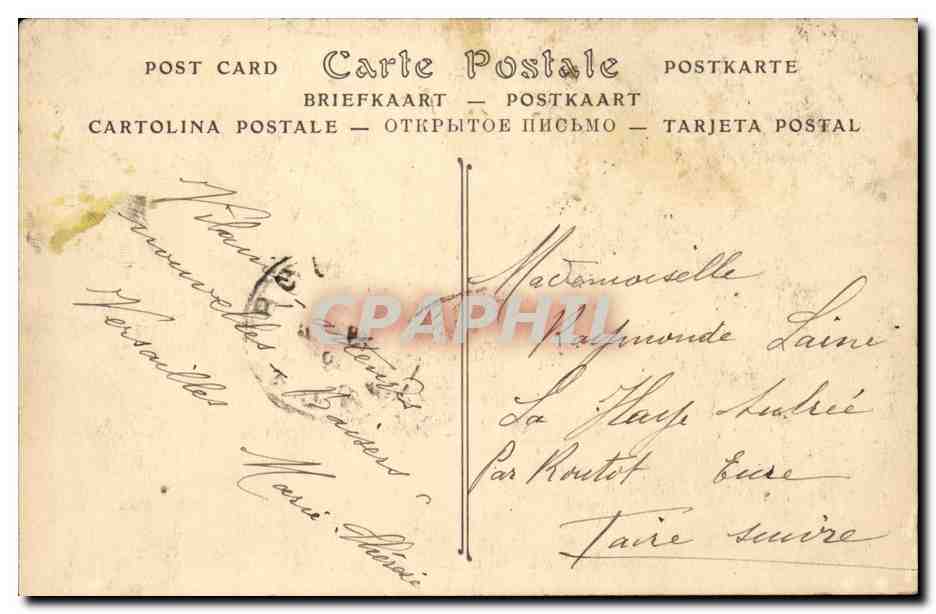 POST CARD Carte Postale POSTKARTE
BRIEFKAART — POSTKAART
CARTOLINA POSTALE — ОТКРЫТОЕ ПИСЬМО — TARJETA POSTAL
nouvelles Baisers
Versailles
Marie-Thérèse
Mademoiselle
Raymonde Laine
La Haye Aubrée
Par Routot Eure
Faire suivre
CPAPHIL